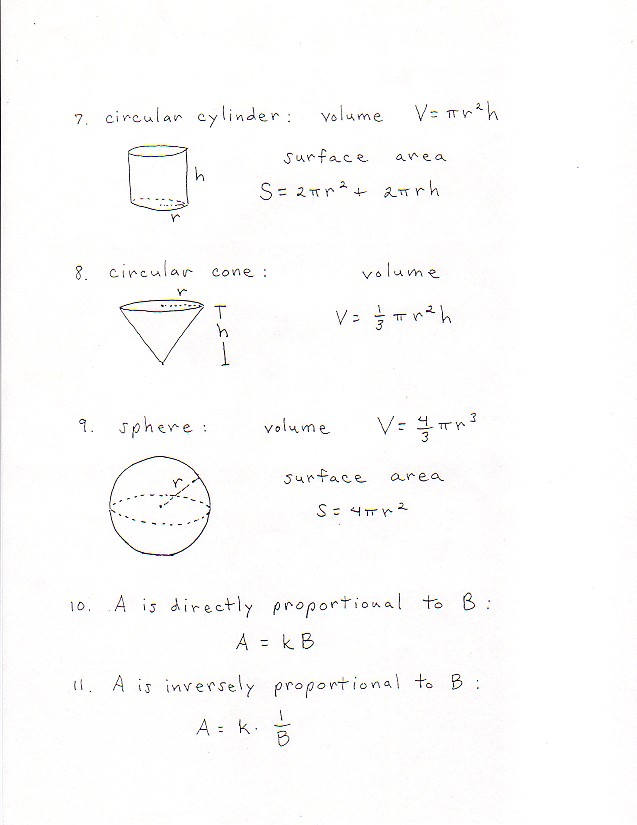 7. circular cylinder: volume V = πr²h
surface area
h
S = 2πr² + 2πrh
r
8. circular cone: volume
r
h
V = 1/3 πr²h
9. sphere: volume V = 4/3 πr³
surface area
r
S = 4πr²
10. A is directly proportional to B:
A = kB
11. A is inversely proportional to B:
A = k · 1/B